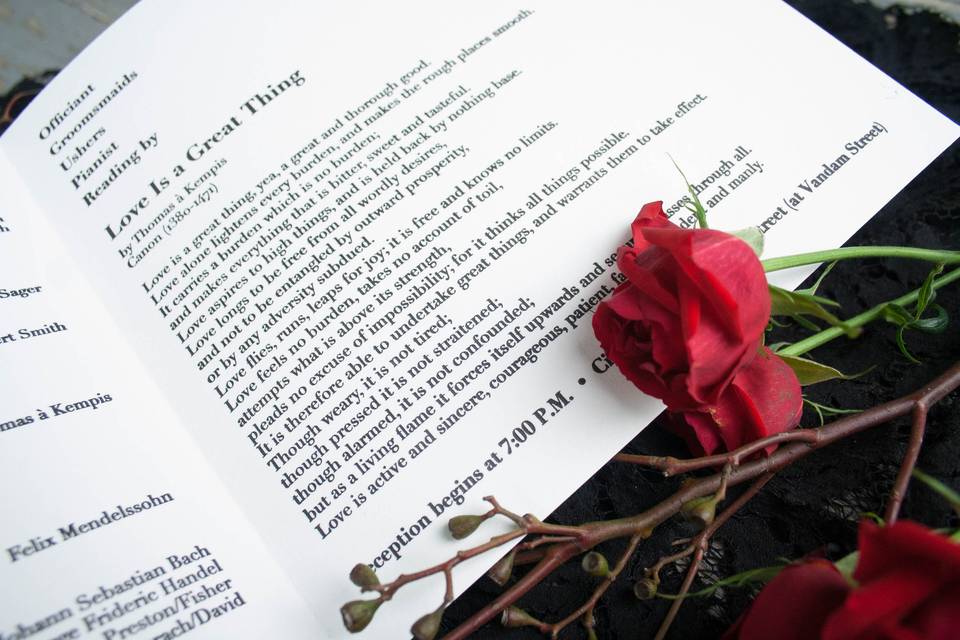 Sager
ert Smith
mas à Kempis
Felix Mendelssohn
ohann Sebastian Bach
Frideric Handel
Preston/Fisher
rach/David
Officiant
Groomsmaids
Ushers
Pianist
Reading by
Love Is a Great Thing
by Thomas à Kempis
Canon (1380-1471)
Love is a great thing, yea, a great and thorough good.
Love alone lightens every burden, and makes the rough places smooth.
It carries a burden which is no burden;
and makes everything that is bitter, sweet and tasteful.
Love aspires to high things, and is held back by nothing base.
Love longs to be free from all wordly desires,
and not to be entangled by outward prosperity,
or by any adversity subdued.
Love flies, runs, leaps for joy; it is free and knows no limits.
Love feels no burden, takes no account of toil,
attempts what is above its strength,
pleads no excuse of impossibility, for it thinks all things possible.
It is therefore able to undertake great things, and warrants them to take effect
Though weary, it is not tired;
though pressed it is not straitened;
though alarmed, it is not confounded;
but as a living flame it forces itself upwards and sesses through all.
Love is active and sincere, courageous, patient, and manly.
eception begins at 7:00 P.M. • treet (at Vandam Street)